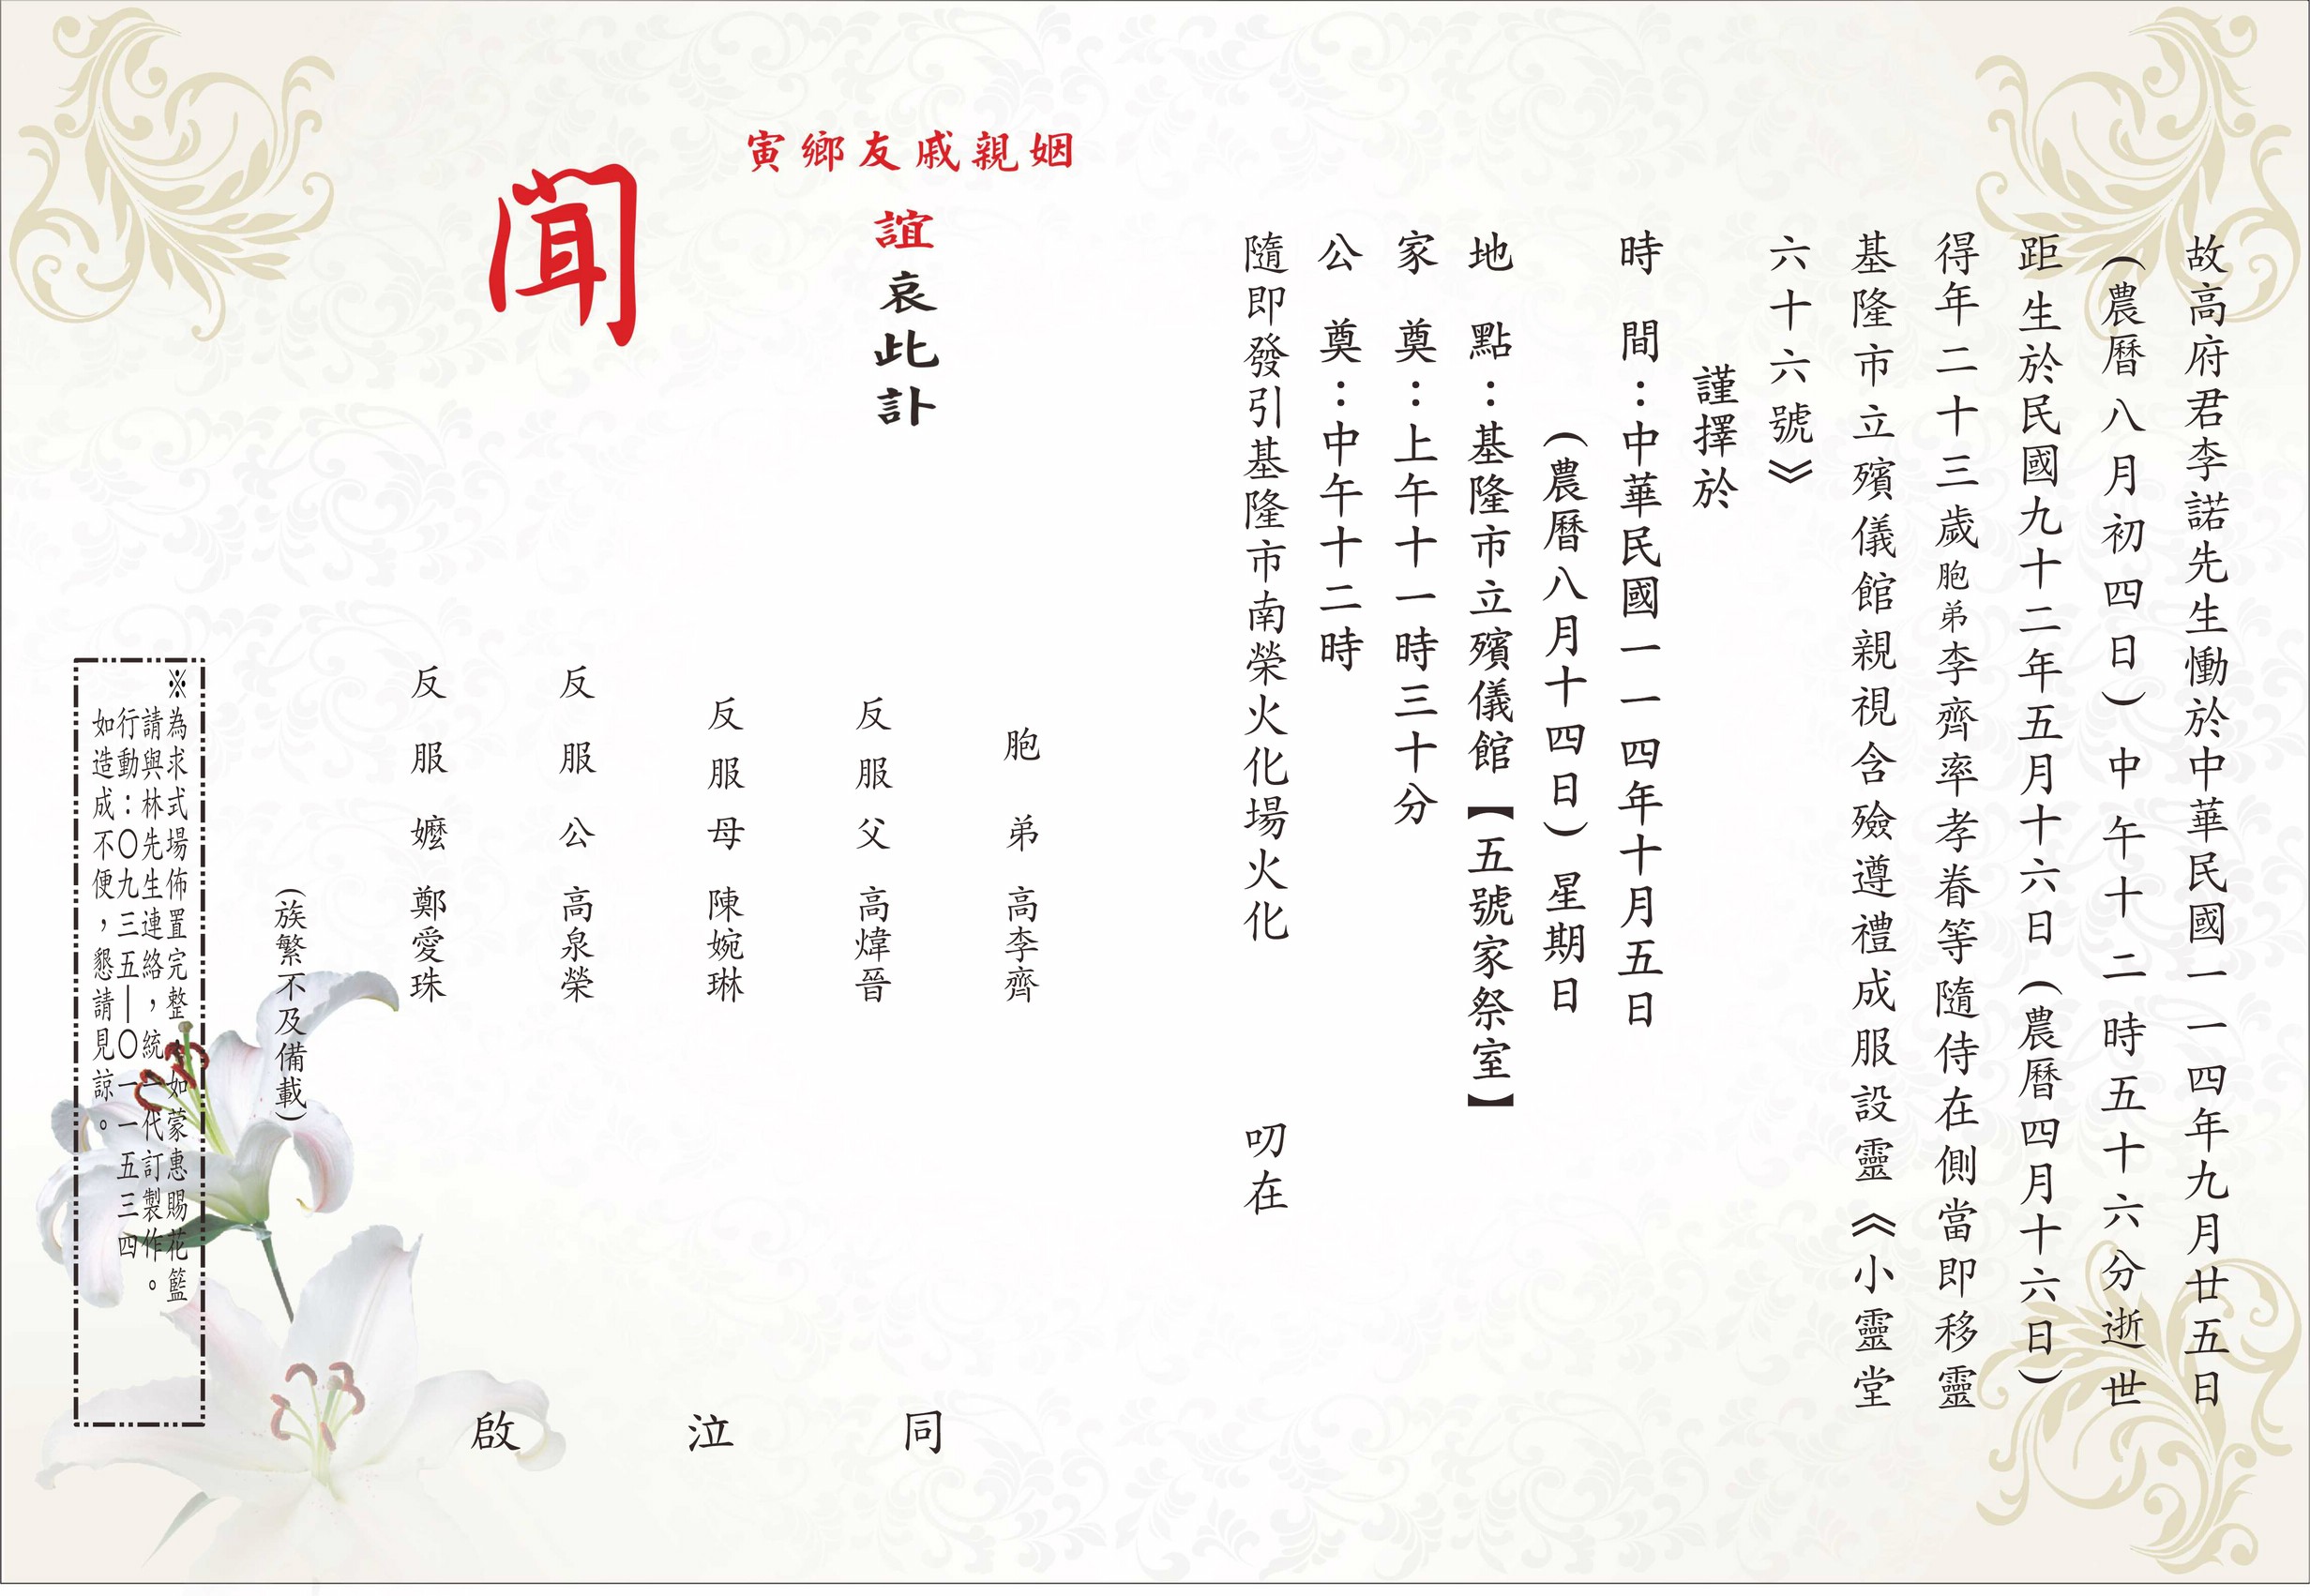 故高府君李諾先生慟於中華民國一一四年九月廿五日
（農曆八月初四日）中午十二時五十六分逝世
距生於民國九十二年五月十六日（農曆四月十六日）
得年二十三歲胞弟李齊率孝眷等隨侍在側當即移靈
基隆市立殯儀館親視含殮遵禮成服設靈《小靈堂
六十六號》
謹擇於
時間：中華民國一一四年十月五日
（農曆八月十四日）星期日
地點：基隆市立殯儀館【五號家祭室】
家奠：上午十一時三十分
公奠：中午十二時
隨即發引基隆市南榮火化場火化 叨在
姻親戚友鄉寅
誼哀此訃
聞
胞弟 高李齊
反服父 高煒晉
反服母 陳婉琳
反服公 高泉榮
反服嬤 鄭愛珠
（族繁不及備載）
同泣啟
※為求式場佈置完整，如蒙惠賜花籃
請與林先生連絡，統一代訂製作。
行動：〇九三五—〇一一五三四
如造成不便，懇請見諒。